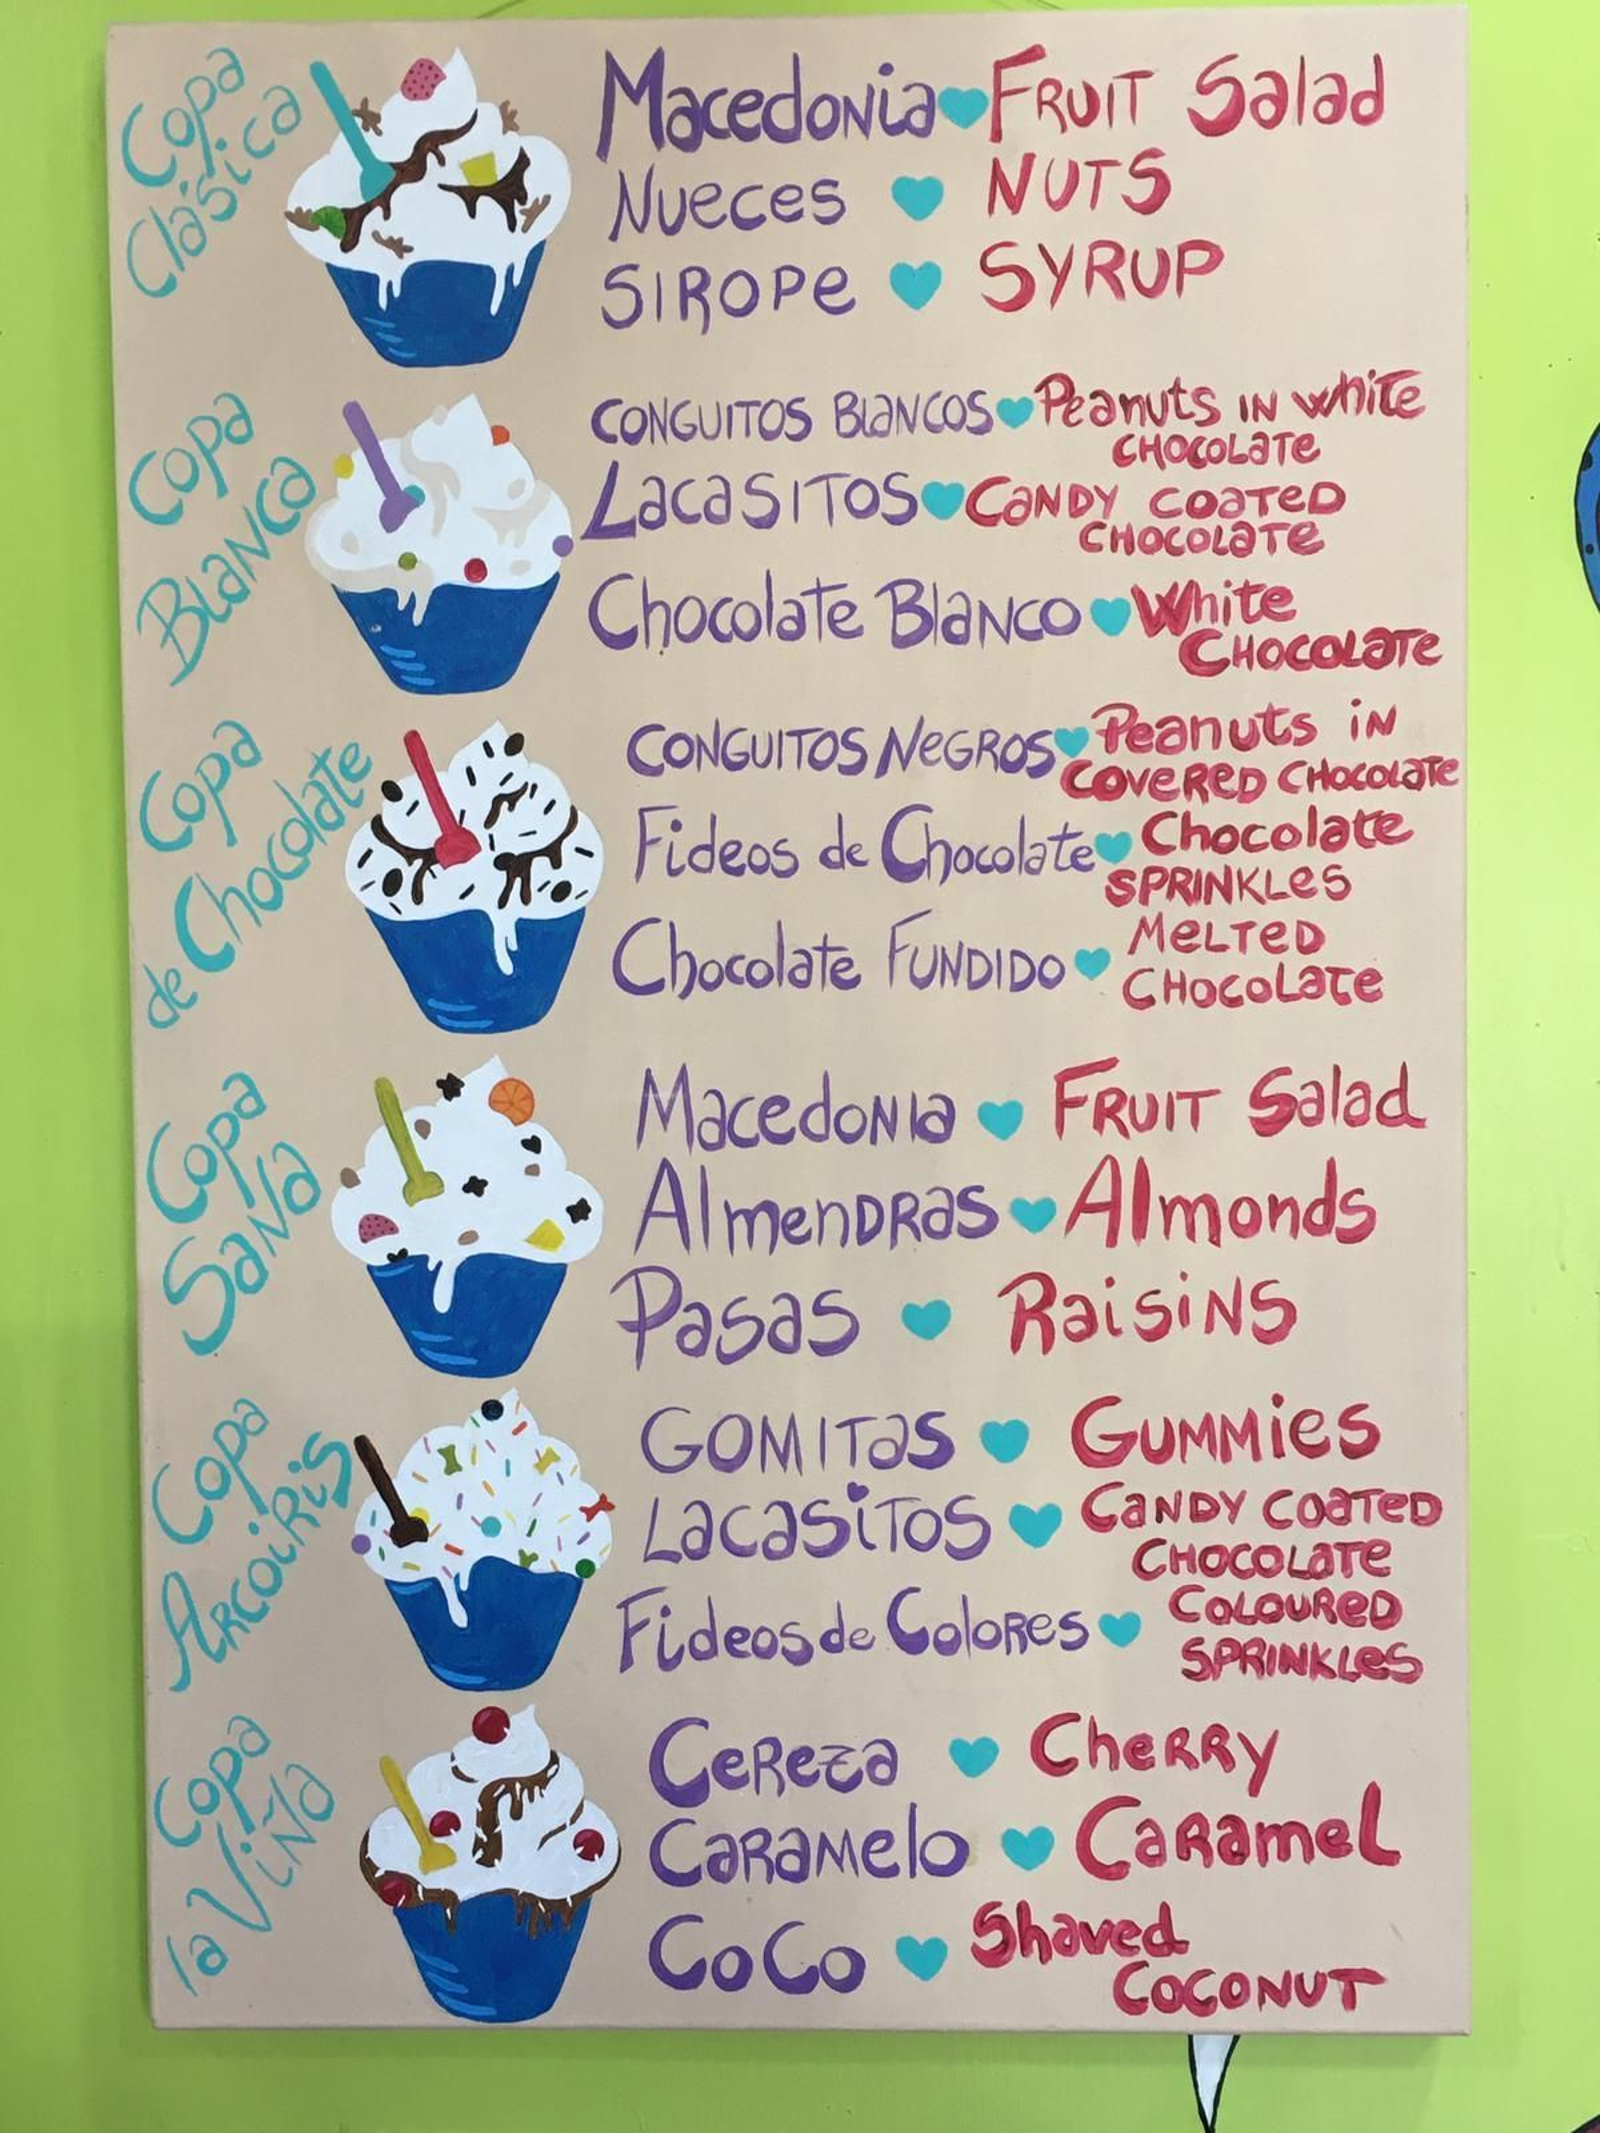 Copa
Clásica
Macedonia FRUIT Salad
Nueces NUTS
SIROPe SYRUP
Copa
Blanca
CONGUITOS BlaNCOS Peanuts IN white
CHOCOLaTe
LacaSITOS CaNDY COaTeD
CHOCOLaTe
Chocolate BlaNCO White
CHOCOLaTe
Copa
de Chocolate
CONGUITOS NeGROS Peanuts iN
COVeReD CHOCOLaTe
Fideos de Chocolate Chocolate
SPRINKLeS
Chocolate FUNDIDO MeLTeD
CHOCOLaTe
Copa
SaNa
MacedoNIa FRUIT Salad
AlmenDRas Almonds
Pasas RaisiNS
Copa
ARCOiRiS
GOMITaS GUMMieS
LacaSiTOS CaNDY COaTeD
CHOCOLaTe
Fideos de ColoRes COLOUReD
SPRINKLeS
Copa
la Viña
CeReza CheRRy
CaRaMelo CaRameL
CoCo Shaved
COCONUT